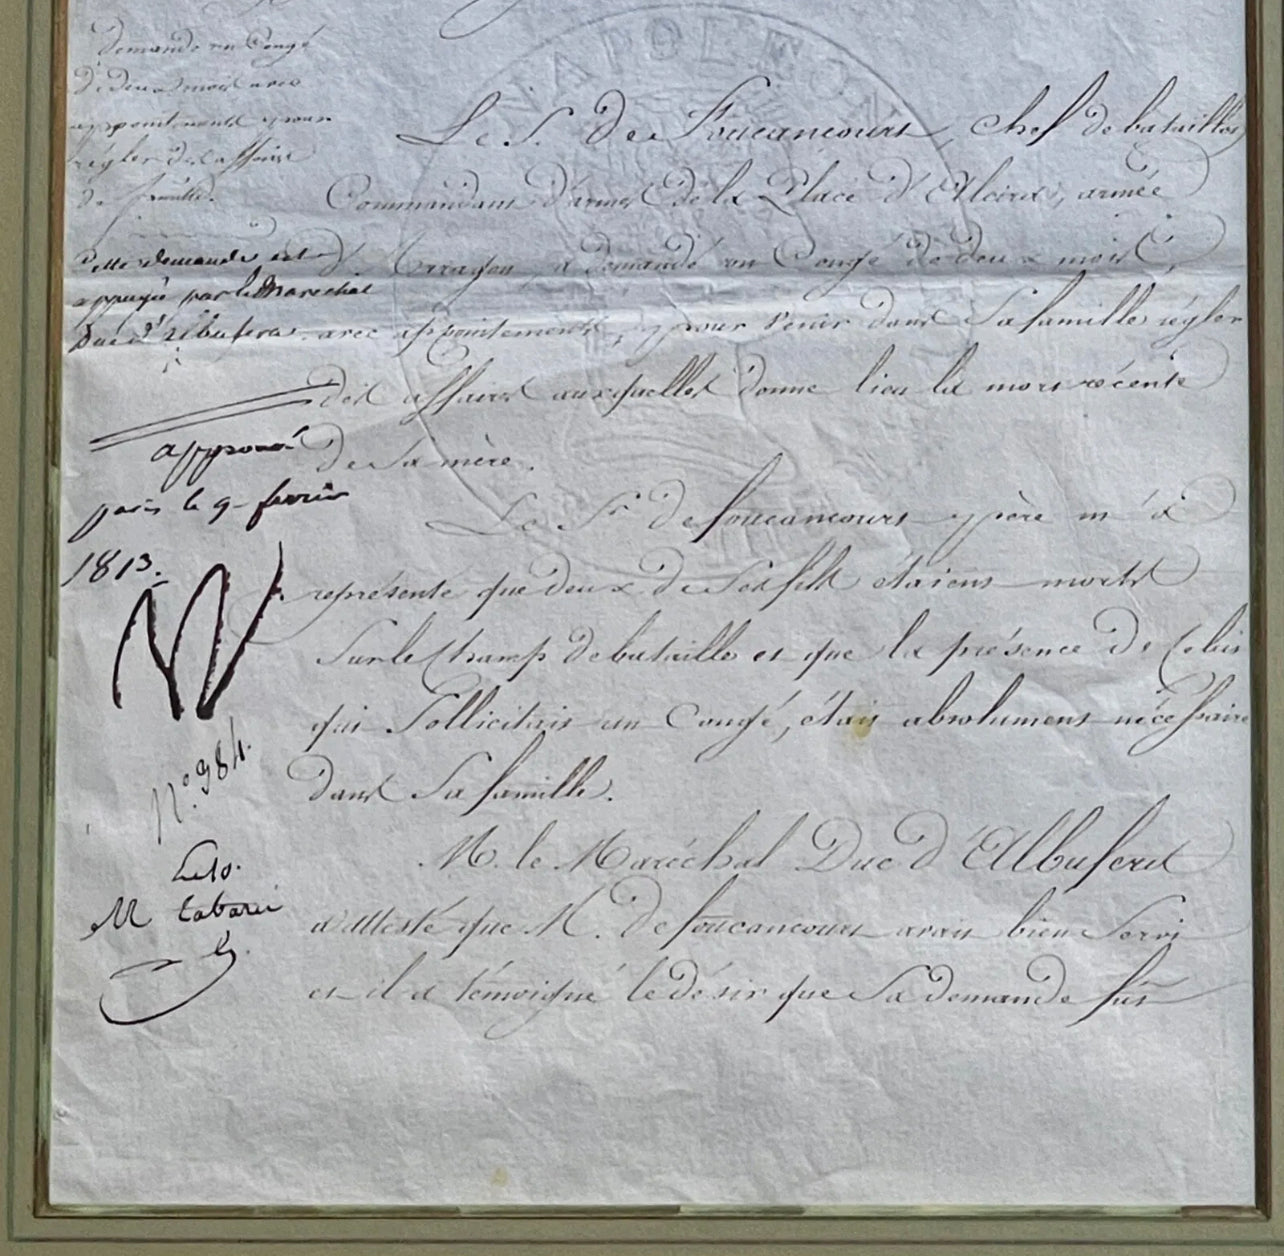 Demande un Congé
de deux mois avec
appointements pour
régler des affaires
de famille.
Cette demande est
appuyée par le Maréchal
Duc d'Albufera.
approuvé
paris le 9 fevrier
1813.
N
N° 984.
M tabarié
NAPOLEON
Le S. de Foucancourt, chef de bataillon
Commandant d'armes de la Place d'Alcira, armée
d'Arragon, a demandé un Congé de deux mois,
avec appointements, pour venir dans sa famille régler
des affaires auxquelles donne lieu la mort récente
de sa mère.
Le Sr. de foucancourt père m'a
représenté que deux de ses fils étaient morts
sur le Champ de bataille et que la présence de Celui
qui sollicitait un Congé, était absolument nécessaire
dans sa famille.
M. le Maréchal Duc d'Albufera
a attesté que M. de foucancourt avait bien servi
et il a témoigné le désir que sa demande fût